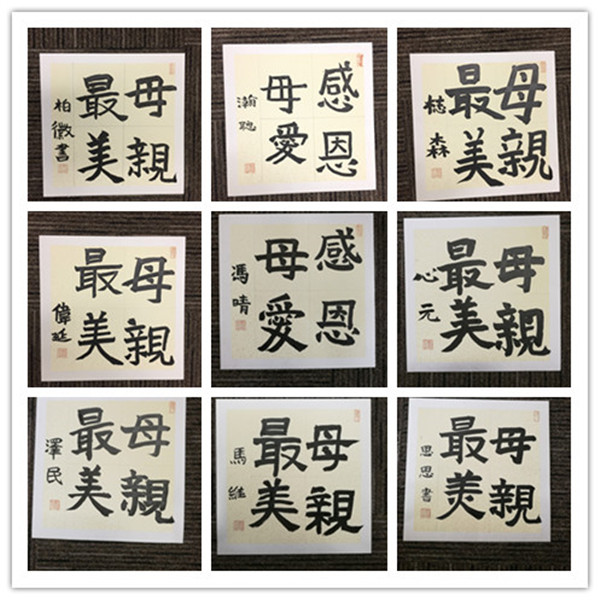 母親
最美
柏徽書
感恩
母愛
瀚聰
母親
最美
森
母親
最美
偉延
感恩
母愛
馮晴
母親
最美
心元
母親
最美
澤民
母親
最美
馬維
母親
最美
思思書